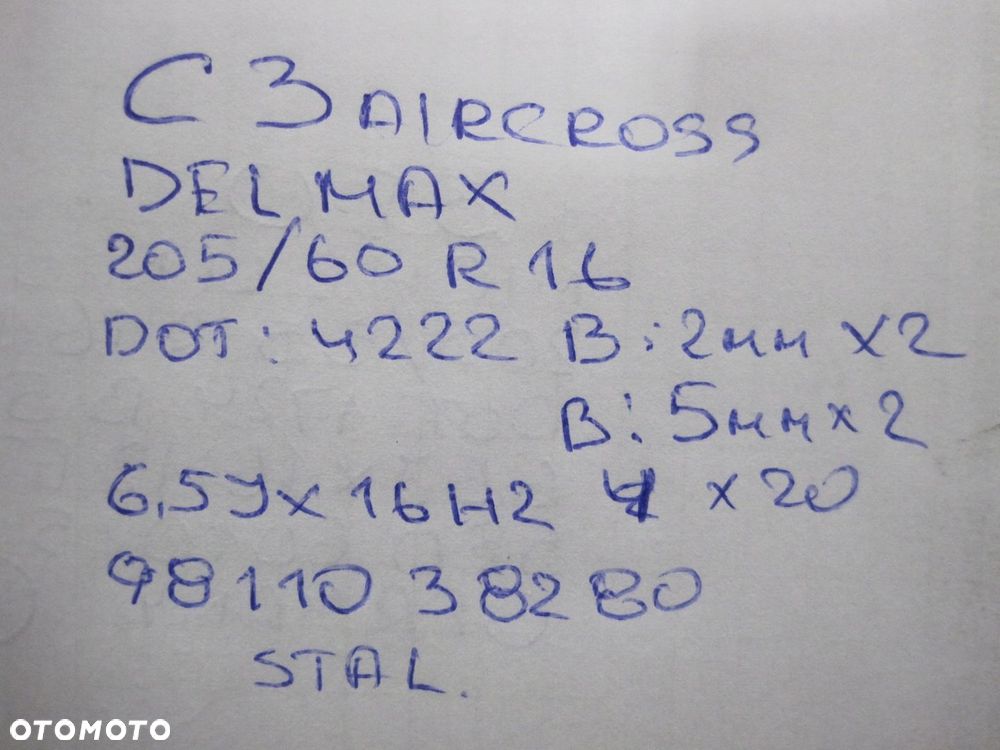 C3 AIRCROSS
DELMAX
205/60 R 16
DOT: 4222 B: 2мм x2
B: 5мм x 2
6,5J x 16 H2 4 x 20
98110 382 80
STAL.
OTOMOTO